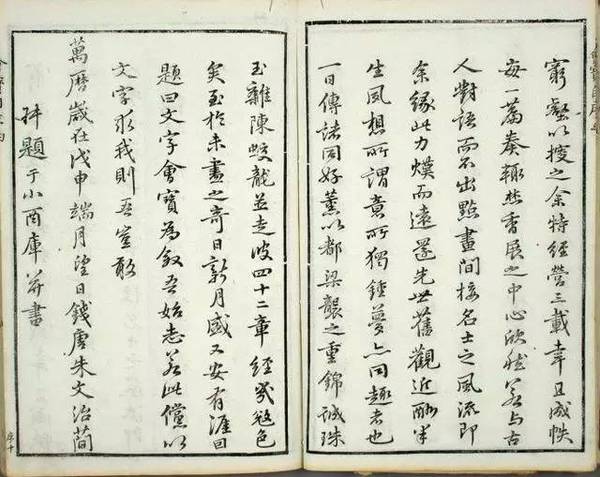 窮壑以搜之余特經營三載幸且成帙
每一篇奏輒焚香展之中心欣然若與古
人對語而不出點畫間接名士之風流即
余緣此力摸而遠還先世舊觀近酬半
生風想所謂意所獨鍾夢亦同趣者也
一日傳諸同好薰以都梁襲之重錦誠珠
玉雜陳蛟龍並走彼四十二章經哭色
矣至於未盡之奇日新月盛又安有涯回
題曰文字會寶為敘吾始志若此儻以
文字求我則吾豈敢
萬曆歲在戊申端月望日錢唐朱文治簡
拜題于小酉庫并書
序十